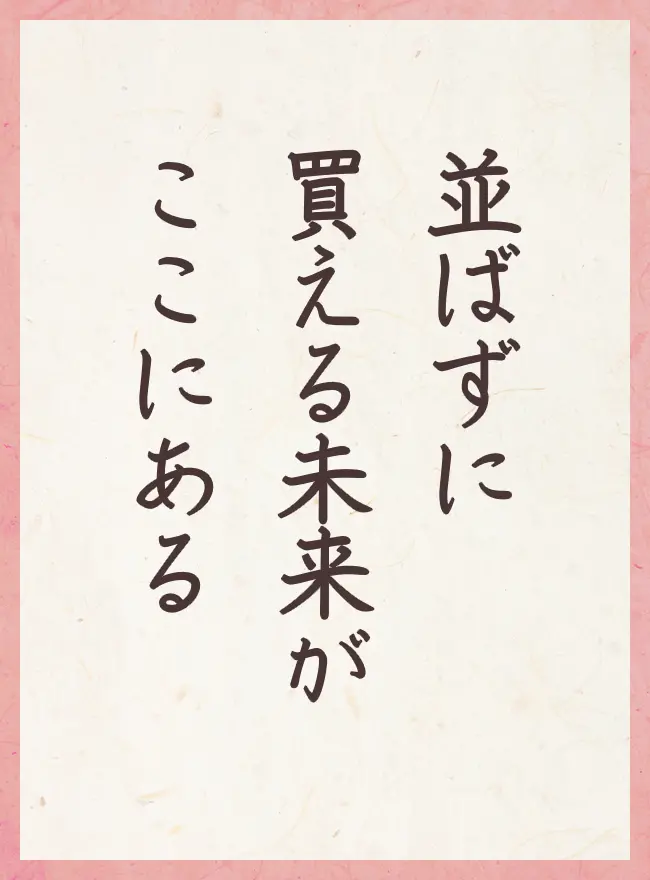 並ばずに
買える未来が
ここにある